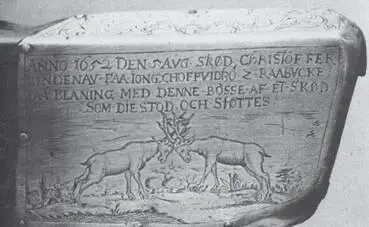 ANNO 1652 DEN 5 AUG SKØD CHRISTOFFER
LINDENAV PAA IONG CHOFFVIDRÓ 2 RAABVCKE
AV BLANING MED DENNE BÖSSE AF ET SKØD
SOM DIE STOD OCH STØTTES